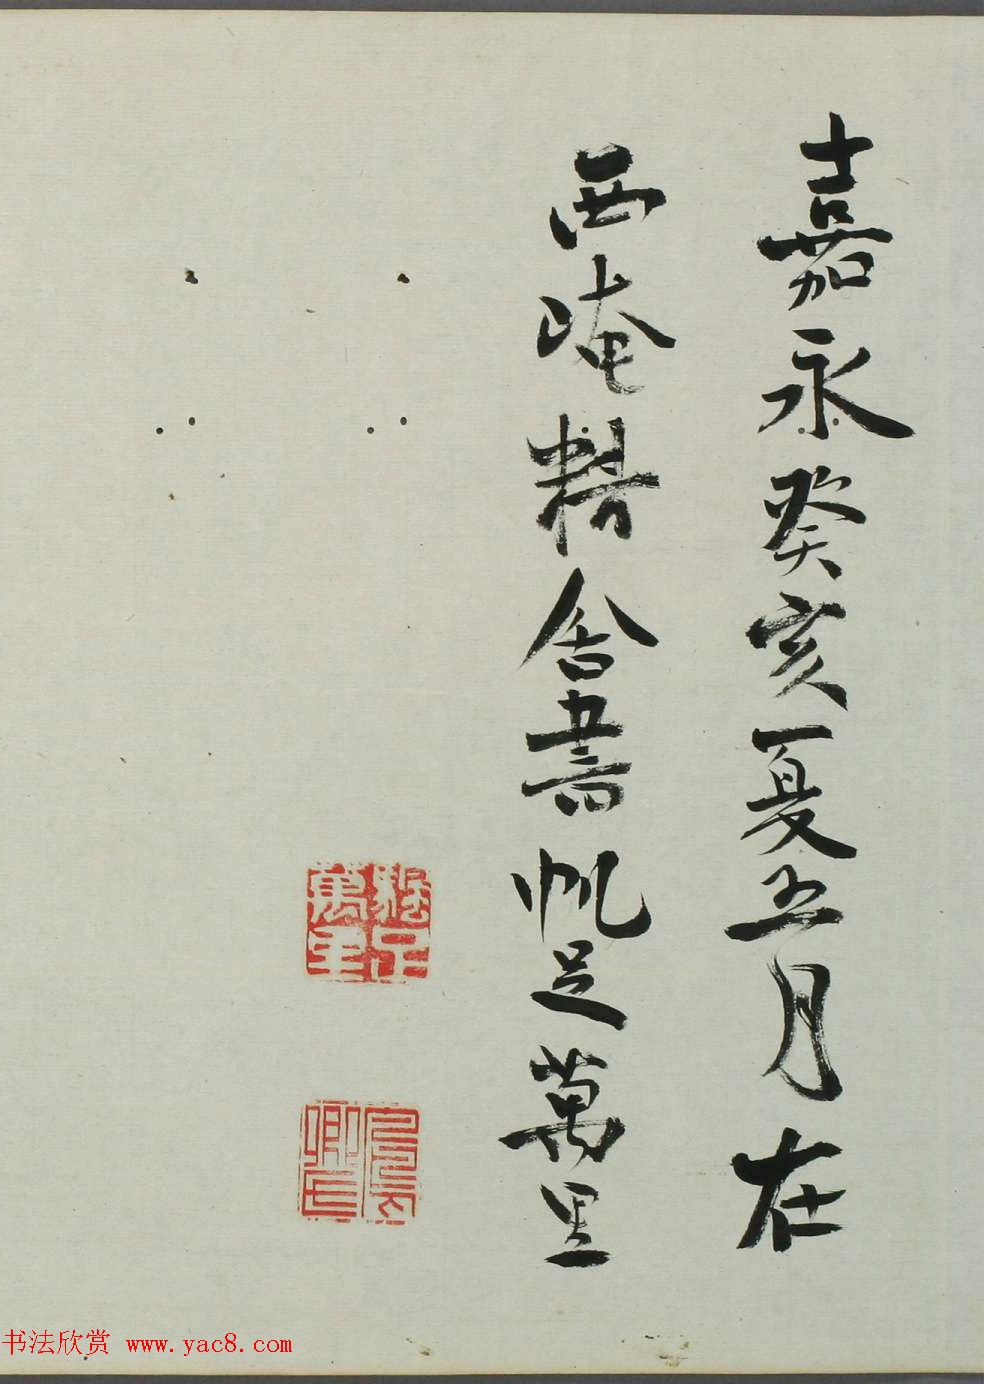 嘉永癸亥夏五月在
西崦精舍書帆足萬里
足萬里
书法欣赏 www.yac8.com